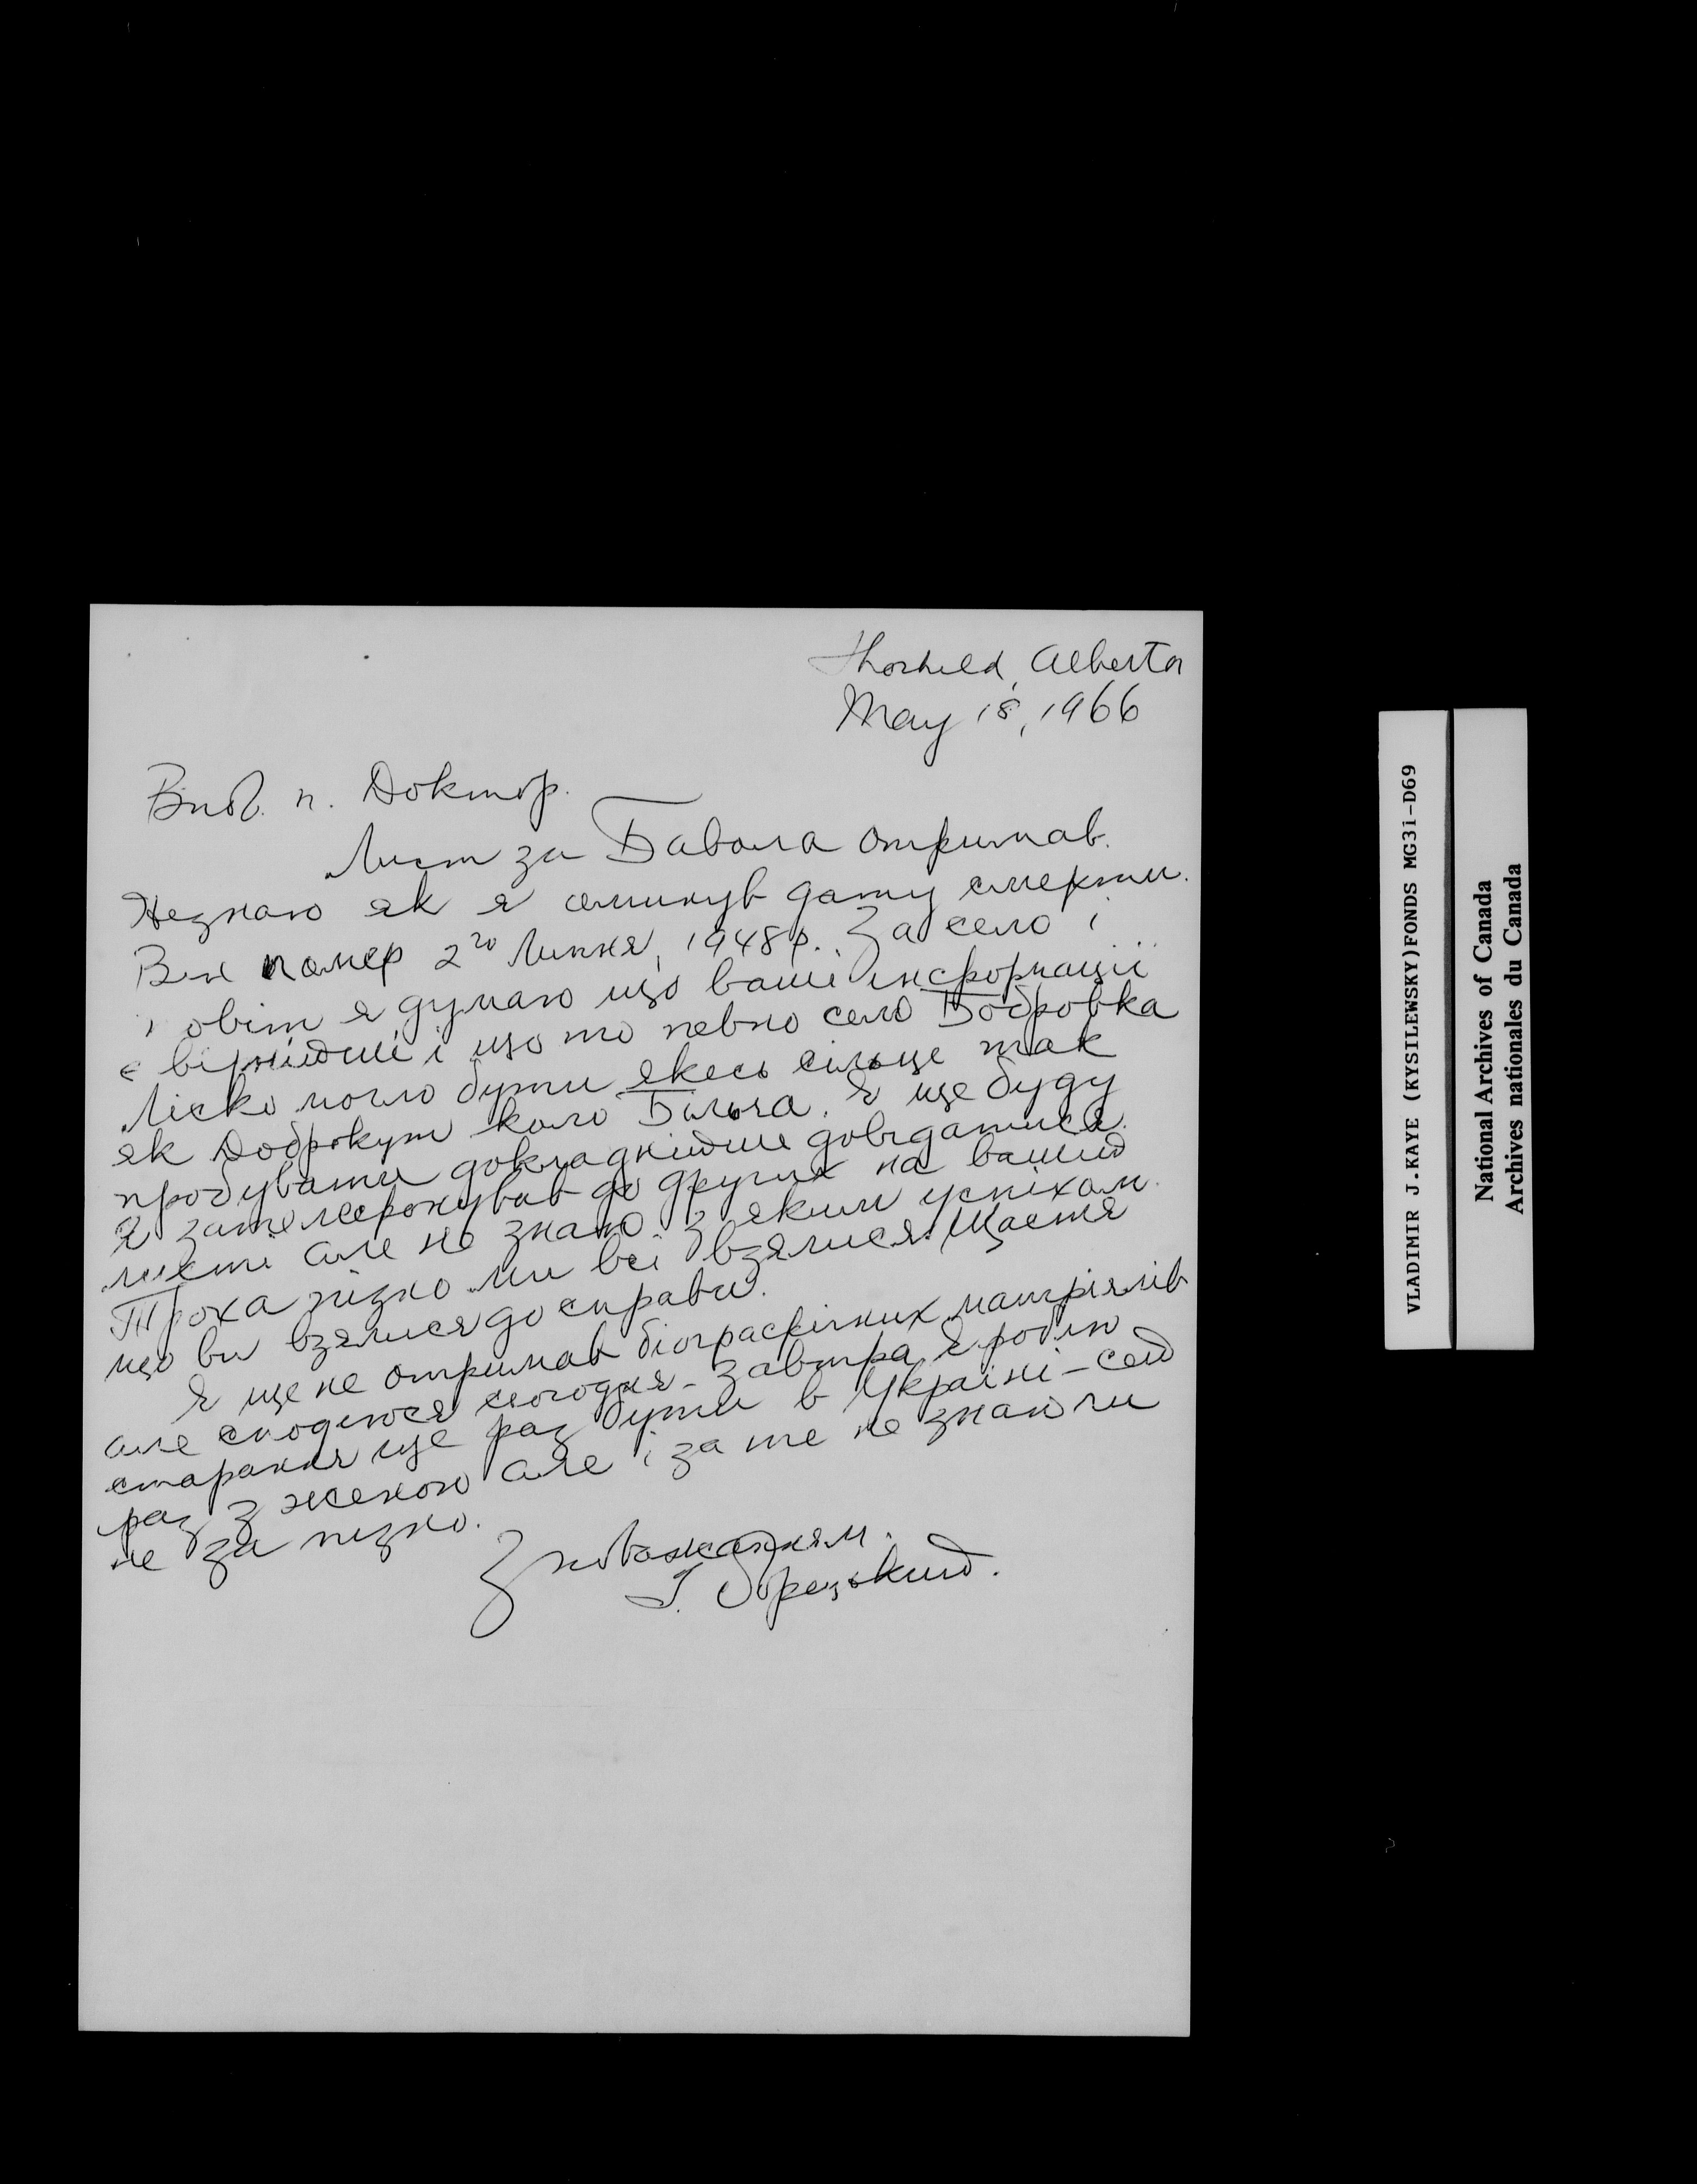 Thorhild, Alberta
May 18, 1966
Впов. п. Доктор.
Лист за Бавола отримав.
Незнаю як я оминув дату смерти.
Він помер 2го Липня, 1948р. За село і
повіт я думаю що ваші інформації
є вірнійші і що то певно село Бобровка
Ліско могло бути якесь сільце так
як Доброкут коло Більча. Я ще буду
пробувати докладнійше довідатися.
Я зателефонував до других на ваший
листі але не знаю з яким успіхом.
Троха пізно ми всі взялися. Щастя
що ви взялися до справи.
Я ще не отримав біографічних матріялів
але сподіюся сьогодня - завтра. Я роблю
стараня ще раз бути в Україні - сей
раз з женою але і за те не знаю чи
не за пізно.
З поважанням.
І. Яворський.
VLADIMIR J.KAYE (KYSILEWSKY)FONDS MG31-D69
National Archives of Canada
Archives nationales du Canada